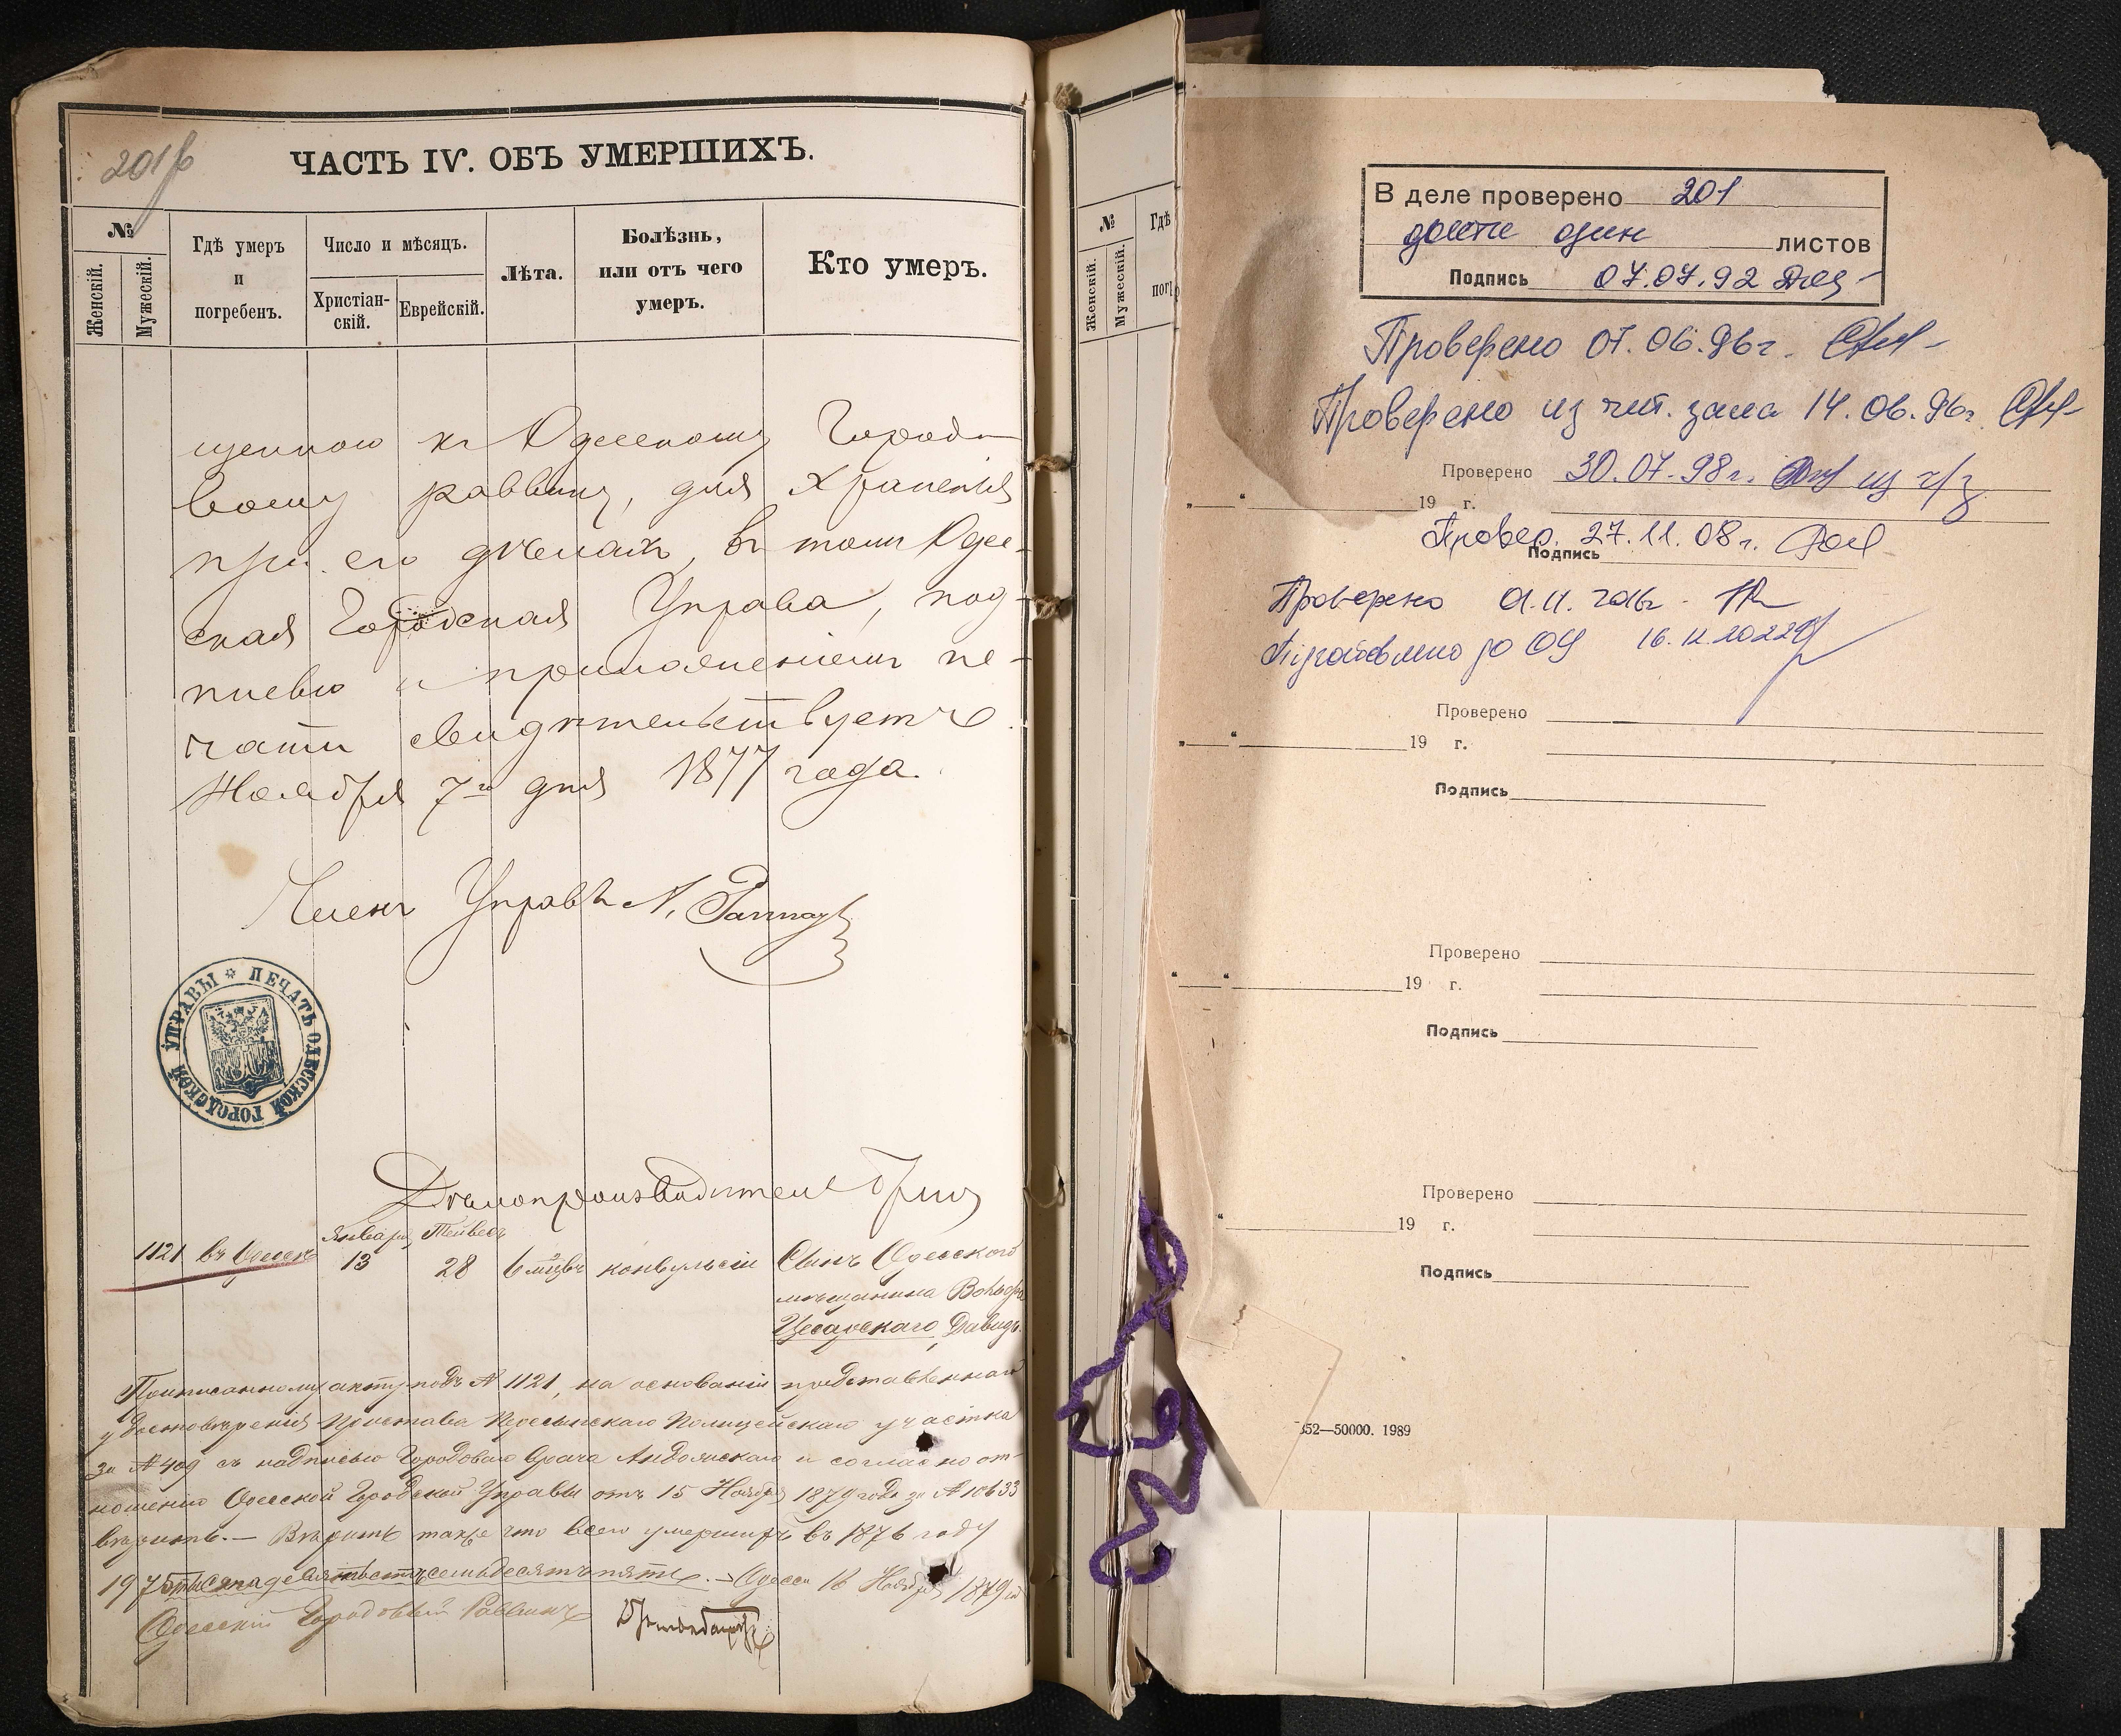 201б
ЧАСТЬ IV. ОБЪ УМЕРШИХЪ.
№
Женскій.
Мужескій.
Гдѣ умеръ
и
погребенъ.
Число и мѣсяцъ.
Христіан-
скій.
Еврейскій.
Лѣта.
Болѣзнь,
или отъ чего
умеръ.
Кто умеръ.
щенною къ Одесскому Городо-
вому раввину, для храненія
при его дѣлахъ, въ томъ Одес-
ская Городская Управа, под-
писью и приложеніемъ пе-
чати свидѣтельствуетъ.
Ноября 7го дня 1877 года.
Членъ Управы
ПЕЧАТЬ ОДЕССКОЙ ГОРОДСКОЙ УПРАВЫ
Дѣлопроизводитель
Января Тейвесъ
1121 въ Одессѣ 13 28 6 мѣсцъ конвульсіи Сынъ Одесскаго
мѣщанина Вольфа
Цесарскаго, Давидъ.
Приписанному акту подъ № 1121, на основаніи представленнаго
удостовѣренія Пристава Пересыпскаго Полицейскаго участка
за № 409 съ надписью Городоваго Врача и согласно от-
ношенію Одесской Городской Управы отъ 15 Ноября 1879 года за № 10633
вѣрить. — Вѣрить также что всего умершихъ въ 1876 году
1975 тысяча девятьсотъ семьдесятъ пять. — Одесса 16 Ноября 1879 го
Одесскій Городовый Раввинъ
№
Женскій.
Мужескій.
Гдѣ
пог
В деле проверено 201
двести один листов
Подпись 07.07.92
Проверено 07.06.96г.
Проверено из чит. зала 14.06.96г.
Проверено 30.07.98г. из ч/з
„ “ 19 г.
Провер. 27.11.08г.
Подпись
Проверено 01.11.2016г.
Підготовлено до ОЦ 16.11.2022р
Проверено
„ “ 19 г.
Подпись
Проверено
“ “ 19 г.
Подпись
Проверено
“ 19 г.
Подпись
352—50000. 1989